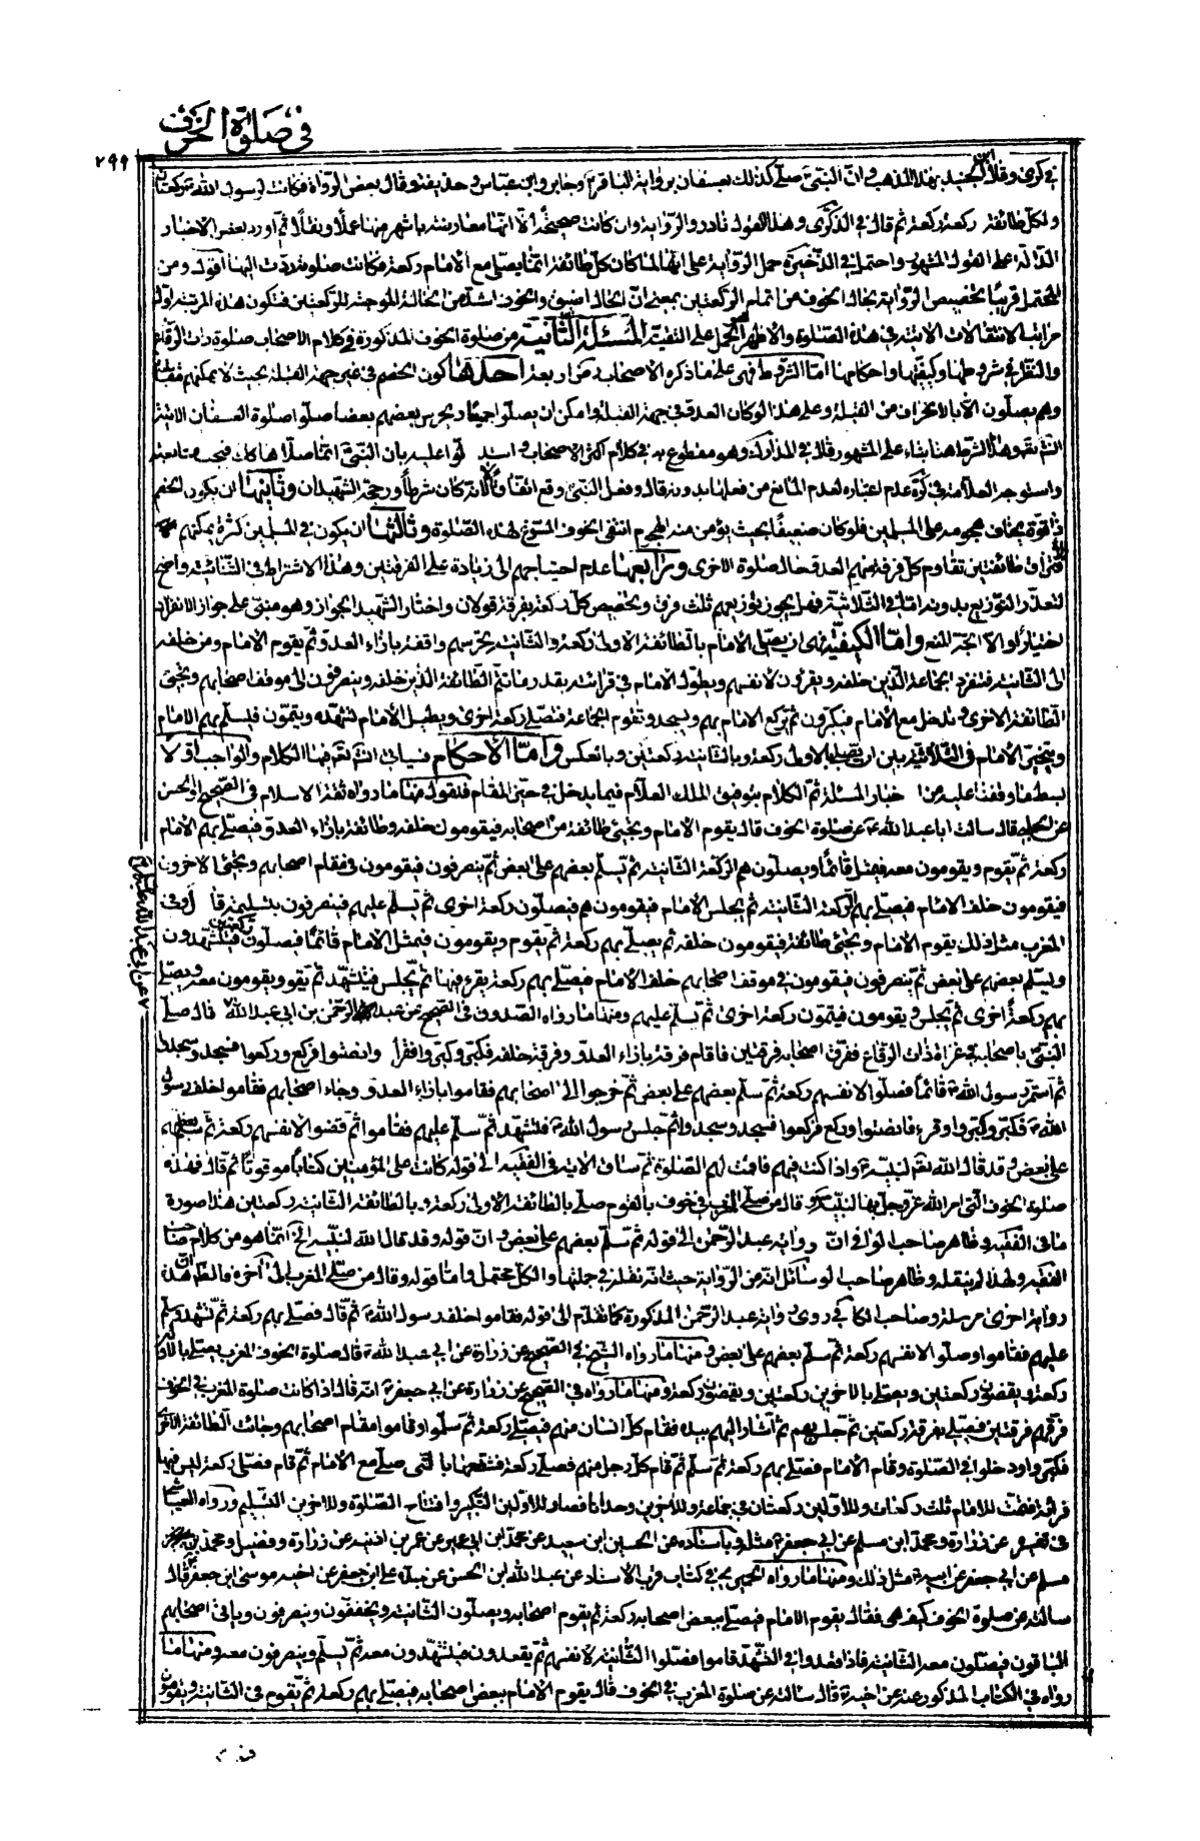 في صلوة الخوف
٢٩٩
في كرى وقال ابن الجنيد بهذا المذهب وان النبي صلى كذلك بعسفان برواية الباقر وجابر وابن عباس وحذيفة وقال بعض الرواة فكانت لرسول الله ركعتان
ولكل طائفة ركعة ركعة ثم قال في الذكرى وهذا القول نادر والرواية وان كانت صحيحة الا انها معارضة باشهر منها عملا ونقلا ثم اورد بعض الاخبار
الدالة على القول المشهور واحتمل في الذخيرة حمل الرواية على انها لما كان كل طائفة انما يصلي مع الامام ركعة فكانت صلوته ردت اليها اقول ومن
المحتمل قريبا تخصيص الرواية بحال الخوف من اتمام الركعتين بمعنى ان الحال اضيق والخوف اشد من الحالة الموجبة للركعتين فتكون هذه المرتبة اول
مراتب الانتقالات الاتية في هذه الصلوة والاظهر الحمل على التقية المسئلة الثانية من صلوة الخوف المذكورة في كلام الاصحاب صلوة ذات الرقاع
والنظر في شروطها وكيفيتها واحكامها اما الشروط فهي على ما ذكره الاصحاب اربعة احدها كون الخصم في غير جهة القبلة بحيث لا يمكنهم مقابلته
وهم يصلون الا بالانحراف عن القبلة وعلى هذا لو كان العدو في جهة القبلة وامكن ان يصلوا جميعا ويحرس بعضهم بعضا صلوا صلوة العسفان الاتية
انش نعم وهذا الشرط هنا بناء على المشهور قال في المدارك وهو مقطوع به في كلام اكثر الاصحاب واستدلوا عليه بان النبي انما صلاها كك فيجب متابعته
واستوجه العلامة في كرة عدم اعتباره لعدم المانع من فعلها بدونه قال وفعل النبي وقع اتفاقا لا لانه كان شرطا ورجحه الشهيدان وثانيها ان يكون الخصم
ذا قوة يخاف هجومه على المسلمين فلو كان ضعيفا بحيث يؤمن منه الهجوم انتفى الخوف المسوغ لهذه الصلوة وثالثها ان يكون في المسلمين كثرة يمكنهم
الافتراق طائفتين تقاوم كل فرقة منهم العدو حال صلوة الاخرى ورابعها عدم احتياجهم الى زيادة على الفرقتين وهذا الاشتراط في الثنائية واضح
لتعذر التوزيع بدونه اما في الثلاثية فهل يجوز توزيعهم ثلث فرق وتخصيص كل ركعة بفرقة قولان واختار الشهيد الجواز وهو مبني على جواز الانفراد
اختيارا والا اتجه المنع واما الكيفية فهي ان يصلي الامام بالطائفة الاولى ركعة والثانية تحرسهم واقفة بازاء العدو ثم يقوم الامام ومن خلفه
الى الثانية فتنفرد الجماعة الذين خلفه ويقرؤن لانفسهم ويطول الامام في قرائته بقدر ما تتم الطائفة الذين خلفه وينصرفون الى موقف اصحابهم وتجئ
الطائفة الاخرى وتدخل مع الامام فيكبرون ثم يركع الامام بهم ويسجد وتقوم الجماعة فتصلي ركعة اخرى ويطيل الامام تشهده ويتمون فيسلم بهم الامام
ويتخير الامام في الثلاثية بين ان يصلي بالاولى ركعة وبالثانية ركعتين وبالعكس واما الاحكام فسياتي انش تعم فيها الكلام والواجب اولا
بسط ما وقفنا عليه من اخبار المسئلة ثم الكلام بتوفيق الملك العلام فيما يدخل في حيز المقام فنقول منها ما رواه ثقة الاسلام في الصحيح او الحسن
عن الحلبي قال سالت ابا عبد الله ع عن صلوة الخوف قال يقوم الامام وتجئ طائفة من اصحابه فيقومون خلفه وطائفة بازاء العدو فيصلي بهم الامام
ركعة ثم يقوم ويقومون معه فيمثل قائما ويصلون هم الركعة الثانية ثم يسلم بعضهم على بعض ثم ينصرفون فيقومون في مقام اصحابهم ويجئ الاخرون
فيقومون خلف الامام فيصلي بهم الركعة الثانية ثم يجلس الامام فيقومون هم فيصلون ركعة اخرى ثم يسلم عليهم فينصرفون بتسليمه قال وفي
المغرب مثل ذلك يقوم الامام وتجئ طائفة فيقومون خلفه ثم يصلي بهم ركعة ثم يقوم ويقومون فيمثل الامام قائما فيصلون ركعتين فيتشهدون
ويسلم بعضهم على بعض ثم ينصرفون فيقومون في موقف اصحابهم خلف الامام فيصلي بهم ركعة يقرء فيها ثم يجلس فيتشهد ثم يقوم ويقومون معه ويصلي
بهم ركعة اخرى ثم يجلس ويقومون فيتمون ركعة اخرى ثم يسلم عليهم ومنها ما رواه الصدوق في الصحيح عن عبد الرحمن بن ابي عبد الله قال صلى
النبي باصحابه في غزاة ذات الرقاع ففرق اصحابه فرقتين فاقام فرقة بازاء العدو وفرقة خلفه فكبر وكبروا فقرأ وانصتوا فركع وركعوا فسجد وسجدوا
ثم استمر رسول الله ص قائما فصلوا لانفسهم ركعة ثم سلم بعضهم على بعض ثم خرجوا الى اصحابهم فقاموا بازاء العدو وجاء اصحابهم فقاموا خلف رسول
الله ص فكبر وكبروا وقرء فانصتوا وركع فركعوا فسجد وسجدوا ثم جلس رسول الله ص فتشهد ثم سلم عليهم فقاموا ثم قضوا لانفسهم ركعة ثم سلم بعضهم
على بعض وقد قال الله تعم لنبيه واذا كنت فيهم فاقمت لهم الصلوة ثم ساق الاية في الفقيه الى قوله كانت على المؤمنين كتابا موقوتا ثم قال فهذه
صلوة الخوف التي امر الله عز وجل بها نبيه وقال من صلى المغرب في خوف بالقوم صلى بالطائفة الاولى ركعة وبالطائفة الثانية ركعتين هذا صورة
ما في الفقيه وظاهر صاحب الوافي ان رواية عبد الرحمن الى قوله ثم سلم بعضهم على بعض وان قوله وقد قال الله لنبيه الخ انما هو من كلام صاحب
الفقيه ولهذا لم ينقله وظاهر صاحب الوسائل انه من الرواية حيث انه نقله في جملتها والكل محتمل واما قوله وقال من صلى المغرب الى آخره فالظاهر ان هذه
رواية اخرى مرسلة وصاحب الكافي روى رواية عبد الرحمن المذكورة كما تقدم الى قوله فقاموا خلف رسول الله ص ثم قال فصلى بهم ركعة ثم تشهد وسلم
عليهم فقاموا وصلوا لانفسهم ركعة ثم سلم بعضهم على بعض ومنها ما رواه الشيخ في الصحيح عن زرارة عن ابي عبد الله ع قال صلوة الخوف المغرب يصلي بالاولين
ركعة ويقضون ركعتين ويصلي بالاخرين ركعتين ويقضون ركعة ومنها ما رواه في الصحيح عن زرارة عن ابي جعفر ع انه قال اذا كانت صلوة المغرب في الخوف
فرقهم فرقتين فيصلي بفرقة ركعتين ثم جلس بهم ثم اشار اليهم بيده فقام كل انسان منهم فيصلي ركعة ثم سلموا وقاموا مقام اصحابهم وجائت الطائفة الاخرى
فكبروا ودخلوا في الصلوة وقام الامام فصلى بهم ركعة ثم سلم ثم قام كل رجل منهم فصلى ركعة فشفعها بالتي صلى مع الامام ثم قام فصلى ركعة ليس فيها
قرائة فتمت للامام ثلث ركعات وللاولين ركعتان في جماعة وللاخرين وحدانا فصار للاولين التكبير وافتتاح الصلوة وللاخرين التسليم ورواه العياشي
في تفسيره عن زرارة ومحمد ابن مسلم عن ابي جعفر ع مثله وباسناده عن الحسين ابن سعيد عن محمد ابن ابي عمير عن عمر بن اذينة عن زرارة وفضيل ومحمد بن
مسلم عن ابي جعفر عن ابيه مثل ذلك ومنها ما رواه الحميري في كتاب قرب الاسناد عن عبد الله ابن الحسن عن جده علي ابن جعفر عن اخيه موسى ابن جعفر قال
سالته عن صلوة الخوف كيف هي فقال يقوم الامام فيصلي ببعض اصحابه ركعة ثم يقوم اصحابه ويصلون الثانية ويخففون وينصرفون وياتي اصحابهم
الباقون فيصلون معه الثانية فاذا قعدوا في التشهد قاموا فصلوا الثانية لانفسهم ثم يقعدون فيتشهدون معه ثم يسلم وينصرفون معه ومنها ما
رواه في الكتاب المذكور عنه عن اخيه قال سالته عن صلوة المغرب في الخوف قال يقوم الامام ببعض اصحابه فيصلي بهم ركعة ثم يقوم في الثانية ويقومون